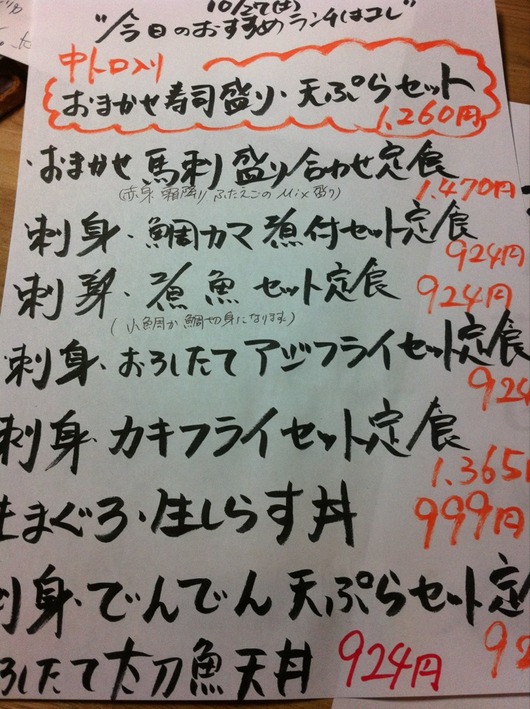 10/27(土)
"今日のおすすめランチはコレ"
中トロ入り
おまかせ寿司盛り・天ぷらセット
1,260円
・おまかせ 馬刺し盛り合わせ定食
(赤身 霜降り ふたえごのMix盛り)
1,470円
刺身・鯛カマ煮付セット定食
924円
刺身・煮魚セット定食
924円
(小鯛か鯛切身になります)
・刺身・おろしたてアジフライセット定食
924
刺身・カキフライセット定食
1,365
生まぐろ・生しらす丼
999円
刺身・でんでん天ぷらセット定
92
ろしたて太刀魚天丼
924円